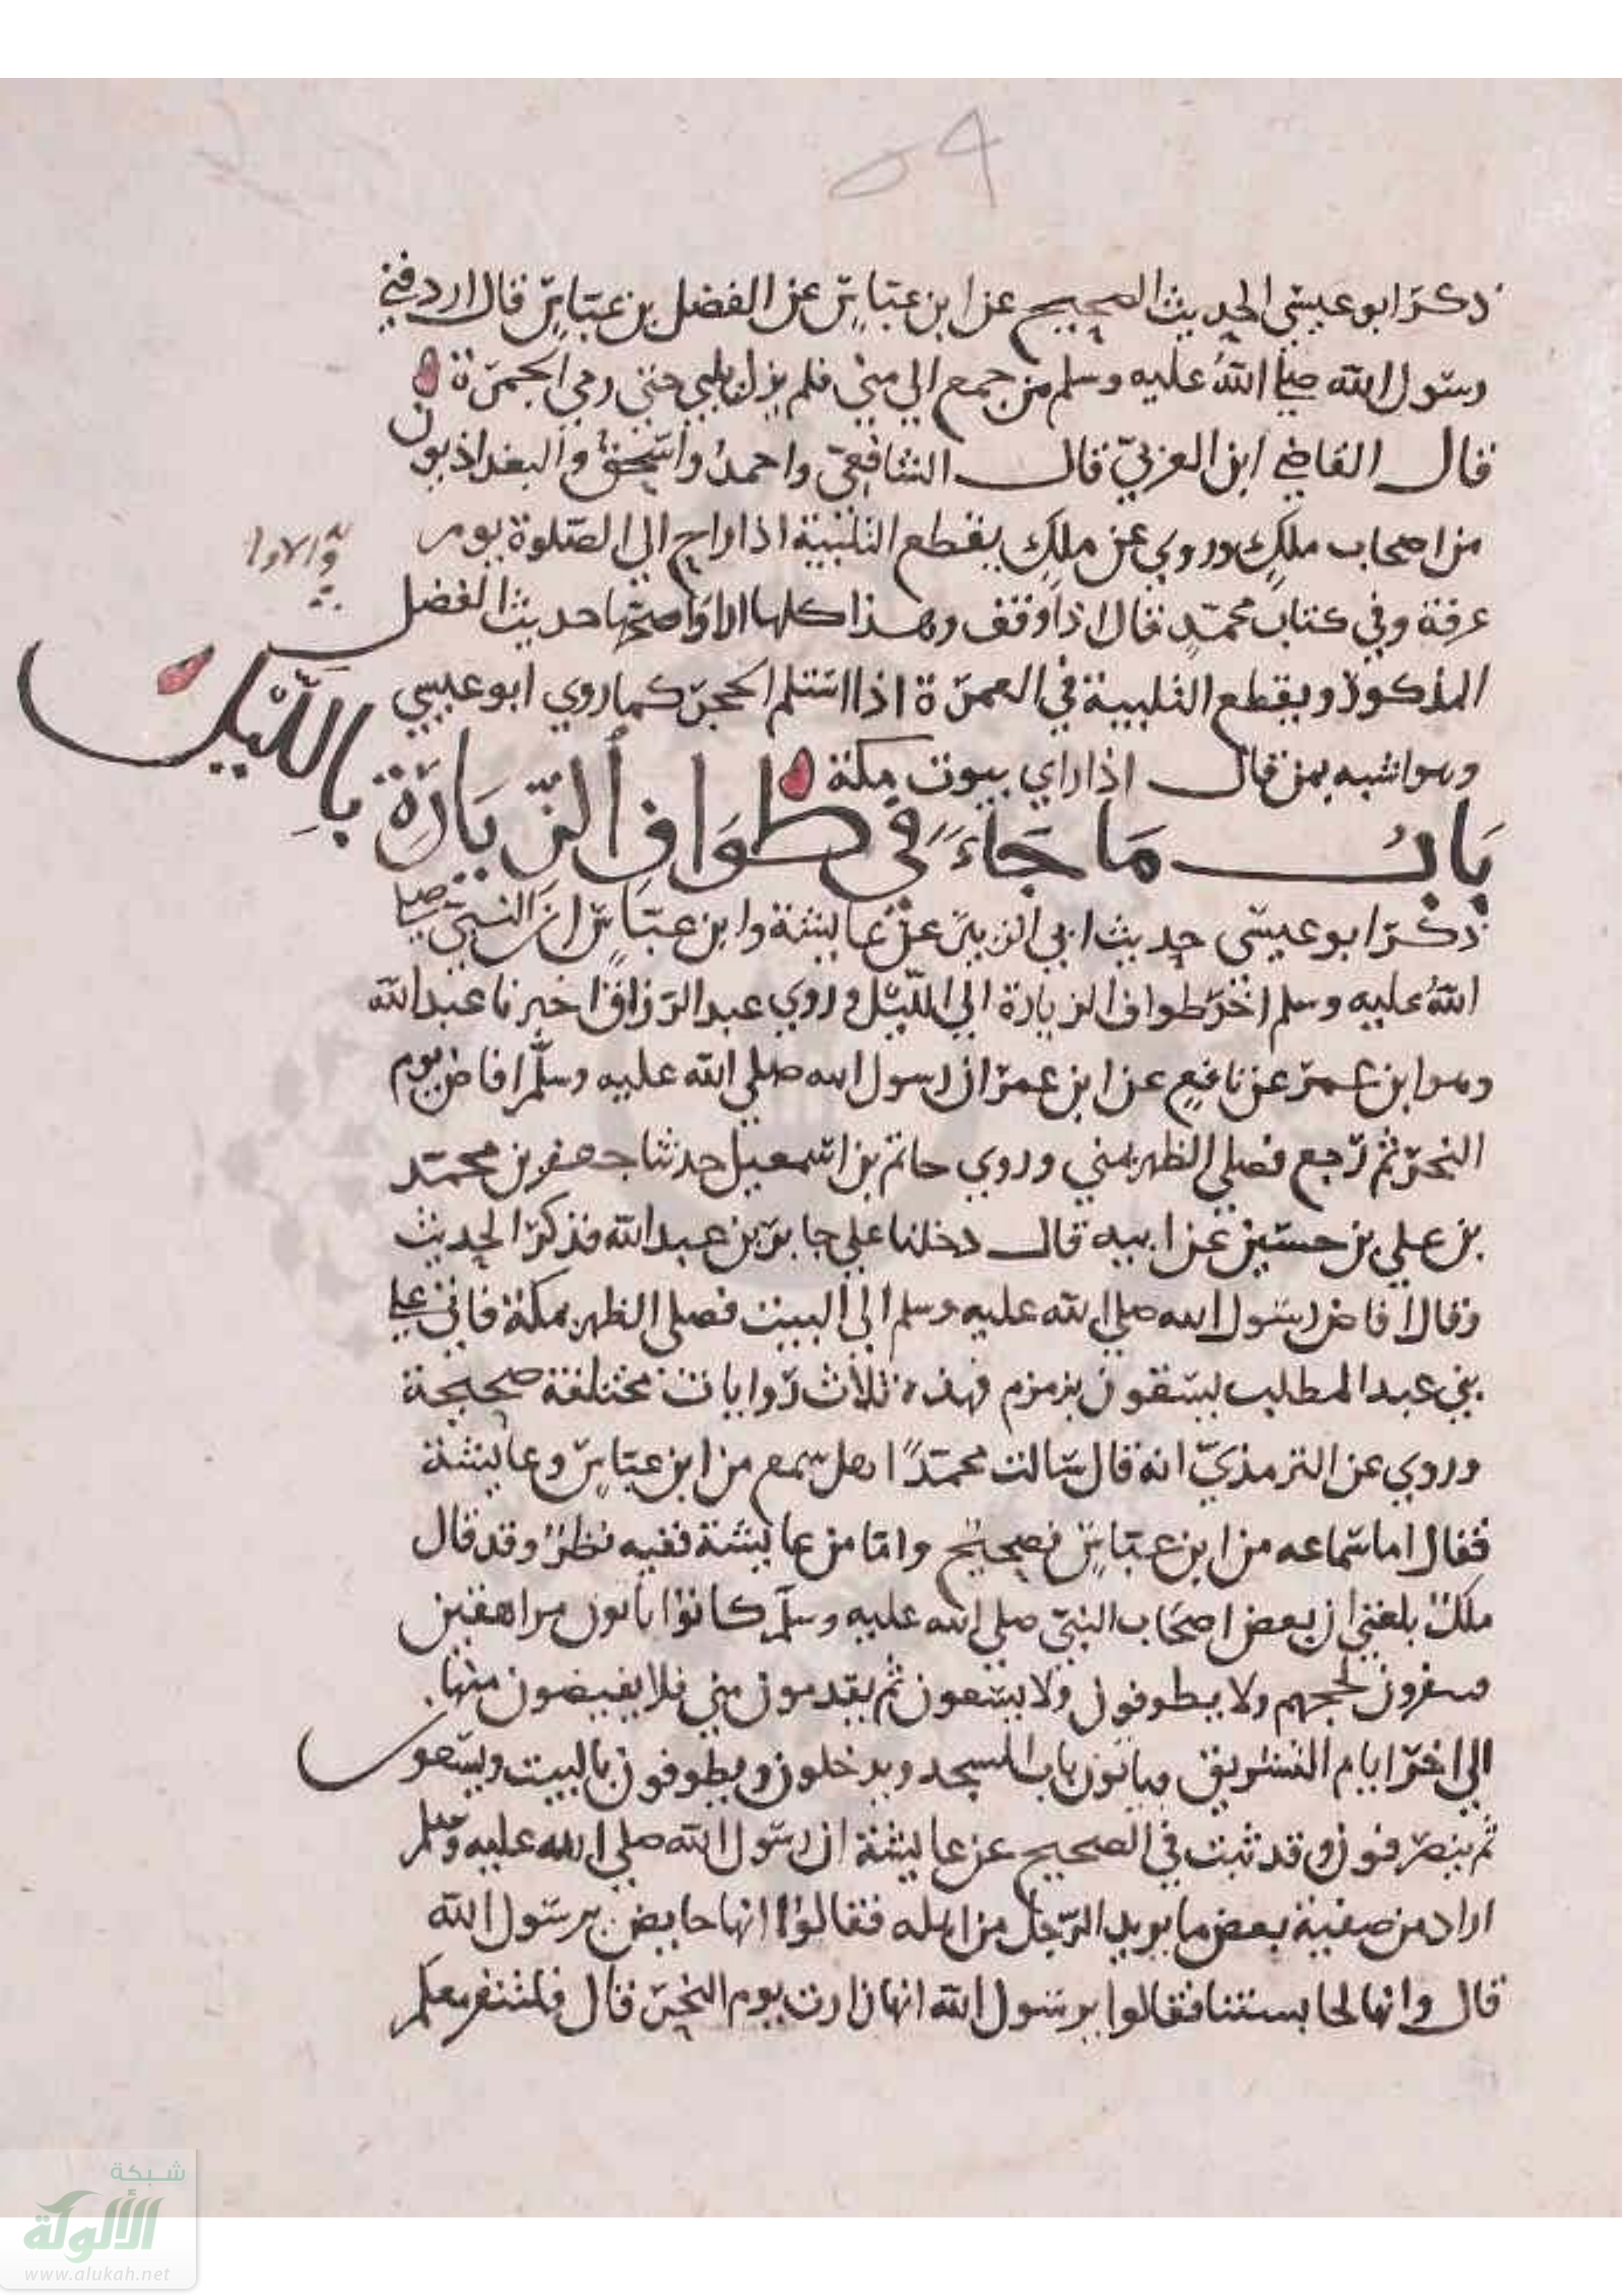 ذكر ابو عيسى الحديث الصحيح عن ابن عباس عن الفضل بن عباس قال اردفني
رسول الله صلى الله عليه وسلم من جمع الي منى فلم يزل يلبي حتى رمي الجمرة
قال القاضي ابن العربي قال الشافعي واحمد واسحق والبغداذيون
من اصحاب ملك وروي عن ملك يقطع التلبية اذا راح الى الصلوة يوم
عرفة وفي كتاب محمد قال اذا وقف وهذا كلها الاوا صحها حديث الفضل
والاولى
المذكور ويقطع التلبية في العمرة اذا استلم الحجر كما روي ابو عيسي
وهو اشبه بمن قال اذا راي بيوت مكة
باب ما جاء في طواف الزيارة بالليل
ذكر ابو عيسى حديث ابي الزبير عن عايشة وابن عباس ان النبي صلى
الله عليه وسلم اخر طواف الزيارة الي الليل وروي عبد الرزاق اخبرنا عبد الله
وهو ابن عمر عن نافع عن ابن عمر ان رسول الله صلي الله عليه وسلم افاض يوم
النحر ثم رجع فصلي الظهر بمني وروي حاتم بن اسمعيل حدثنا جعفر بن محمد
بن علي بن حسين عن ابيه قال دخلنا علي جابر بن عبد الله فذكر الحديث
وقال افاض رسول الله صلي الله عليه وسلم الى البيت فصلى الظهر بمكة فاتى على
بني عبد المطلب يسقون بزمزم فهذه ثلاث روايات مختلفة صحيحة
وروي عن الترمذي انه قال سالت محمدا اهل سمع من ابن عباس وعايشة
فقال اما سماعه من ابن عباس فصحيح واما من عايشة ففيه نظر وقد قال
ملك بلغني ان بعض اصحاب النبي صلي الله عليه وسلم كانوا ياتون مراهقين
لحجهم ولا يطوفون ولا يسعون ثم يقدمون مني فلا يفيضون منها
الي اخر ايام التشريق فياتون باب المسجد ويدخلون ويطوفون بالبيت ويسعون
ثم ينصرفون وقد ثبت في الصحيح عن عايشة ان رسول الله صلي الله عليه وسلم
اراد من صفية بعض ما يريد الرجل من اهله فقالوا انها حايض يرسول الله
قال وانها لحابستنا فقالوا يرسول الله انها زارت يوم النحر قال فلتنفر معكم
شبكة
الألوكة
www.alukah.net